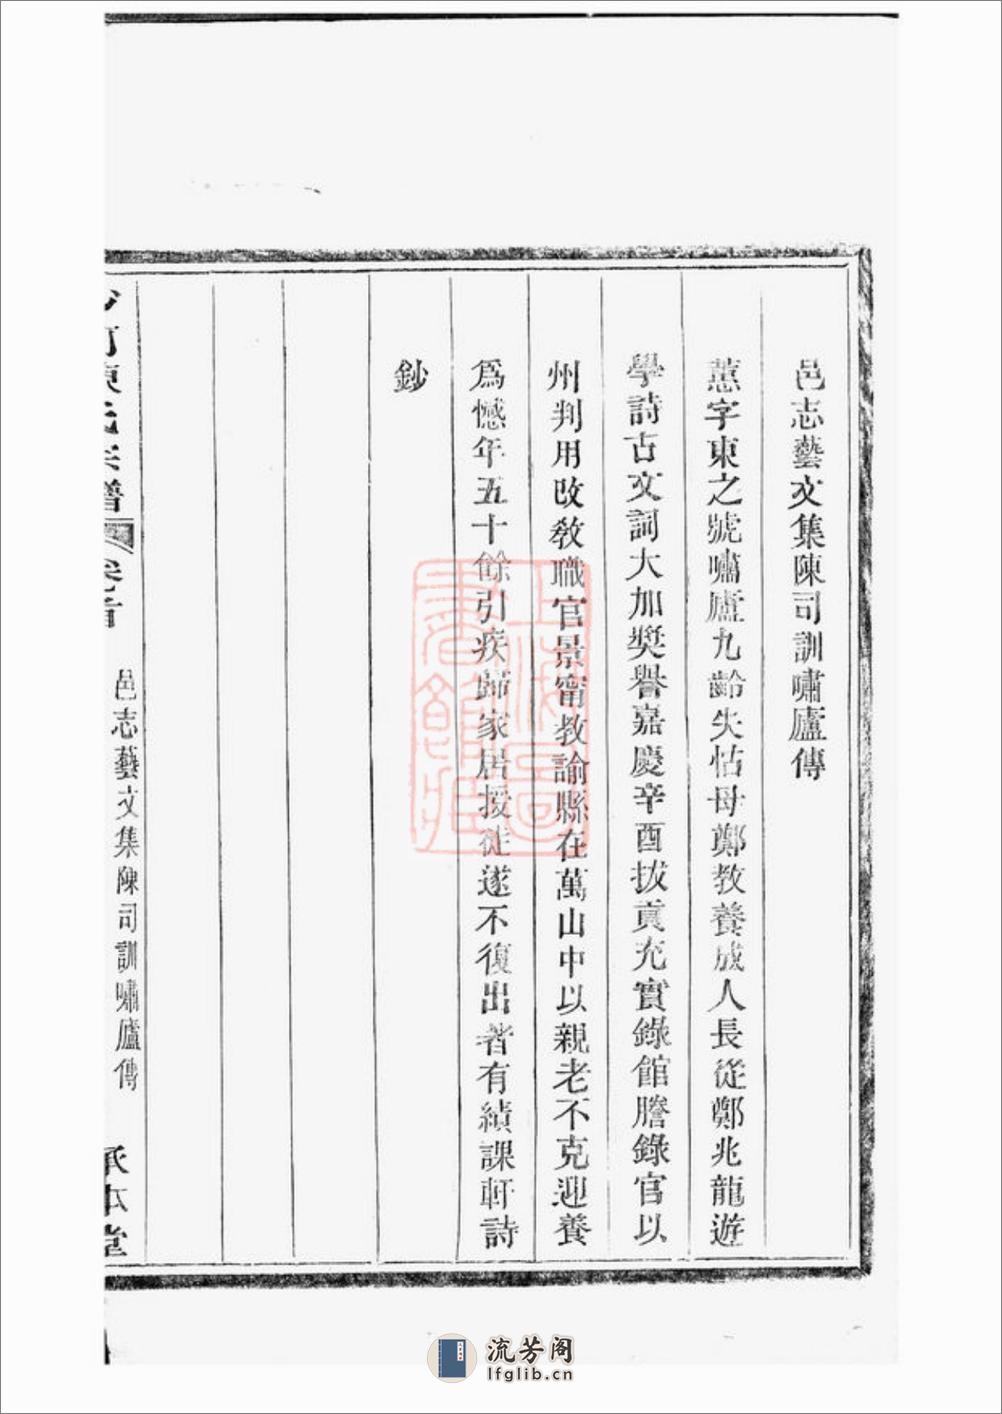 邑志藝文集陳司訓嘯廬傳
蕙字東之號嘯廬九齡失怙母鄭教養成人長從鄭兆龍遊
學詩古文詞大加獎譽嘉慶辛酉拔貢充實錄館謄錄官以
州判用改教職官景甯教諭縣在萬山中以親老不克迎養
爲憾年五十餘引疾歸家居授徒遂不復出著有績課軒詩
鈔
沙河陳氏宗譜
卷首
邑志藝文集陳司訓嘯廬傳
承本堂
流芳阁
lfglib.cn